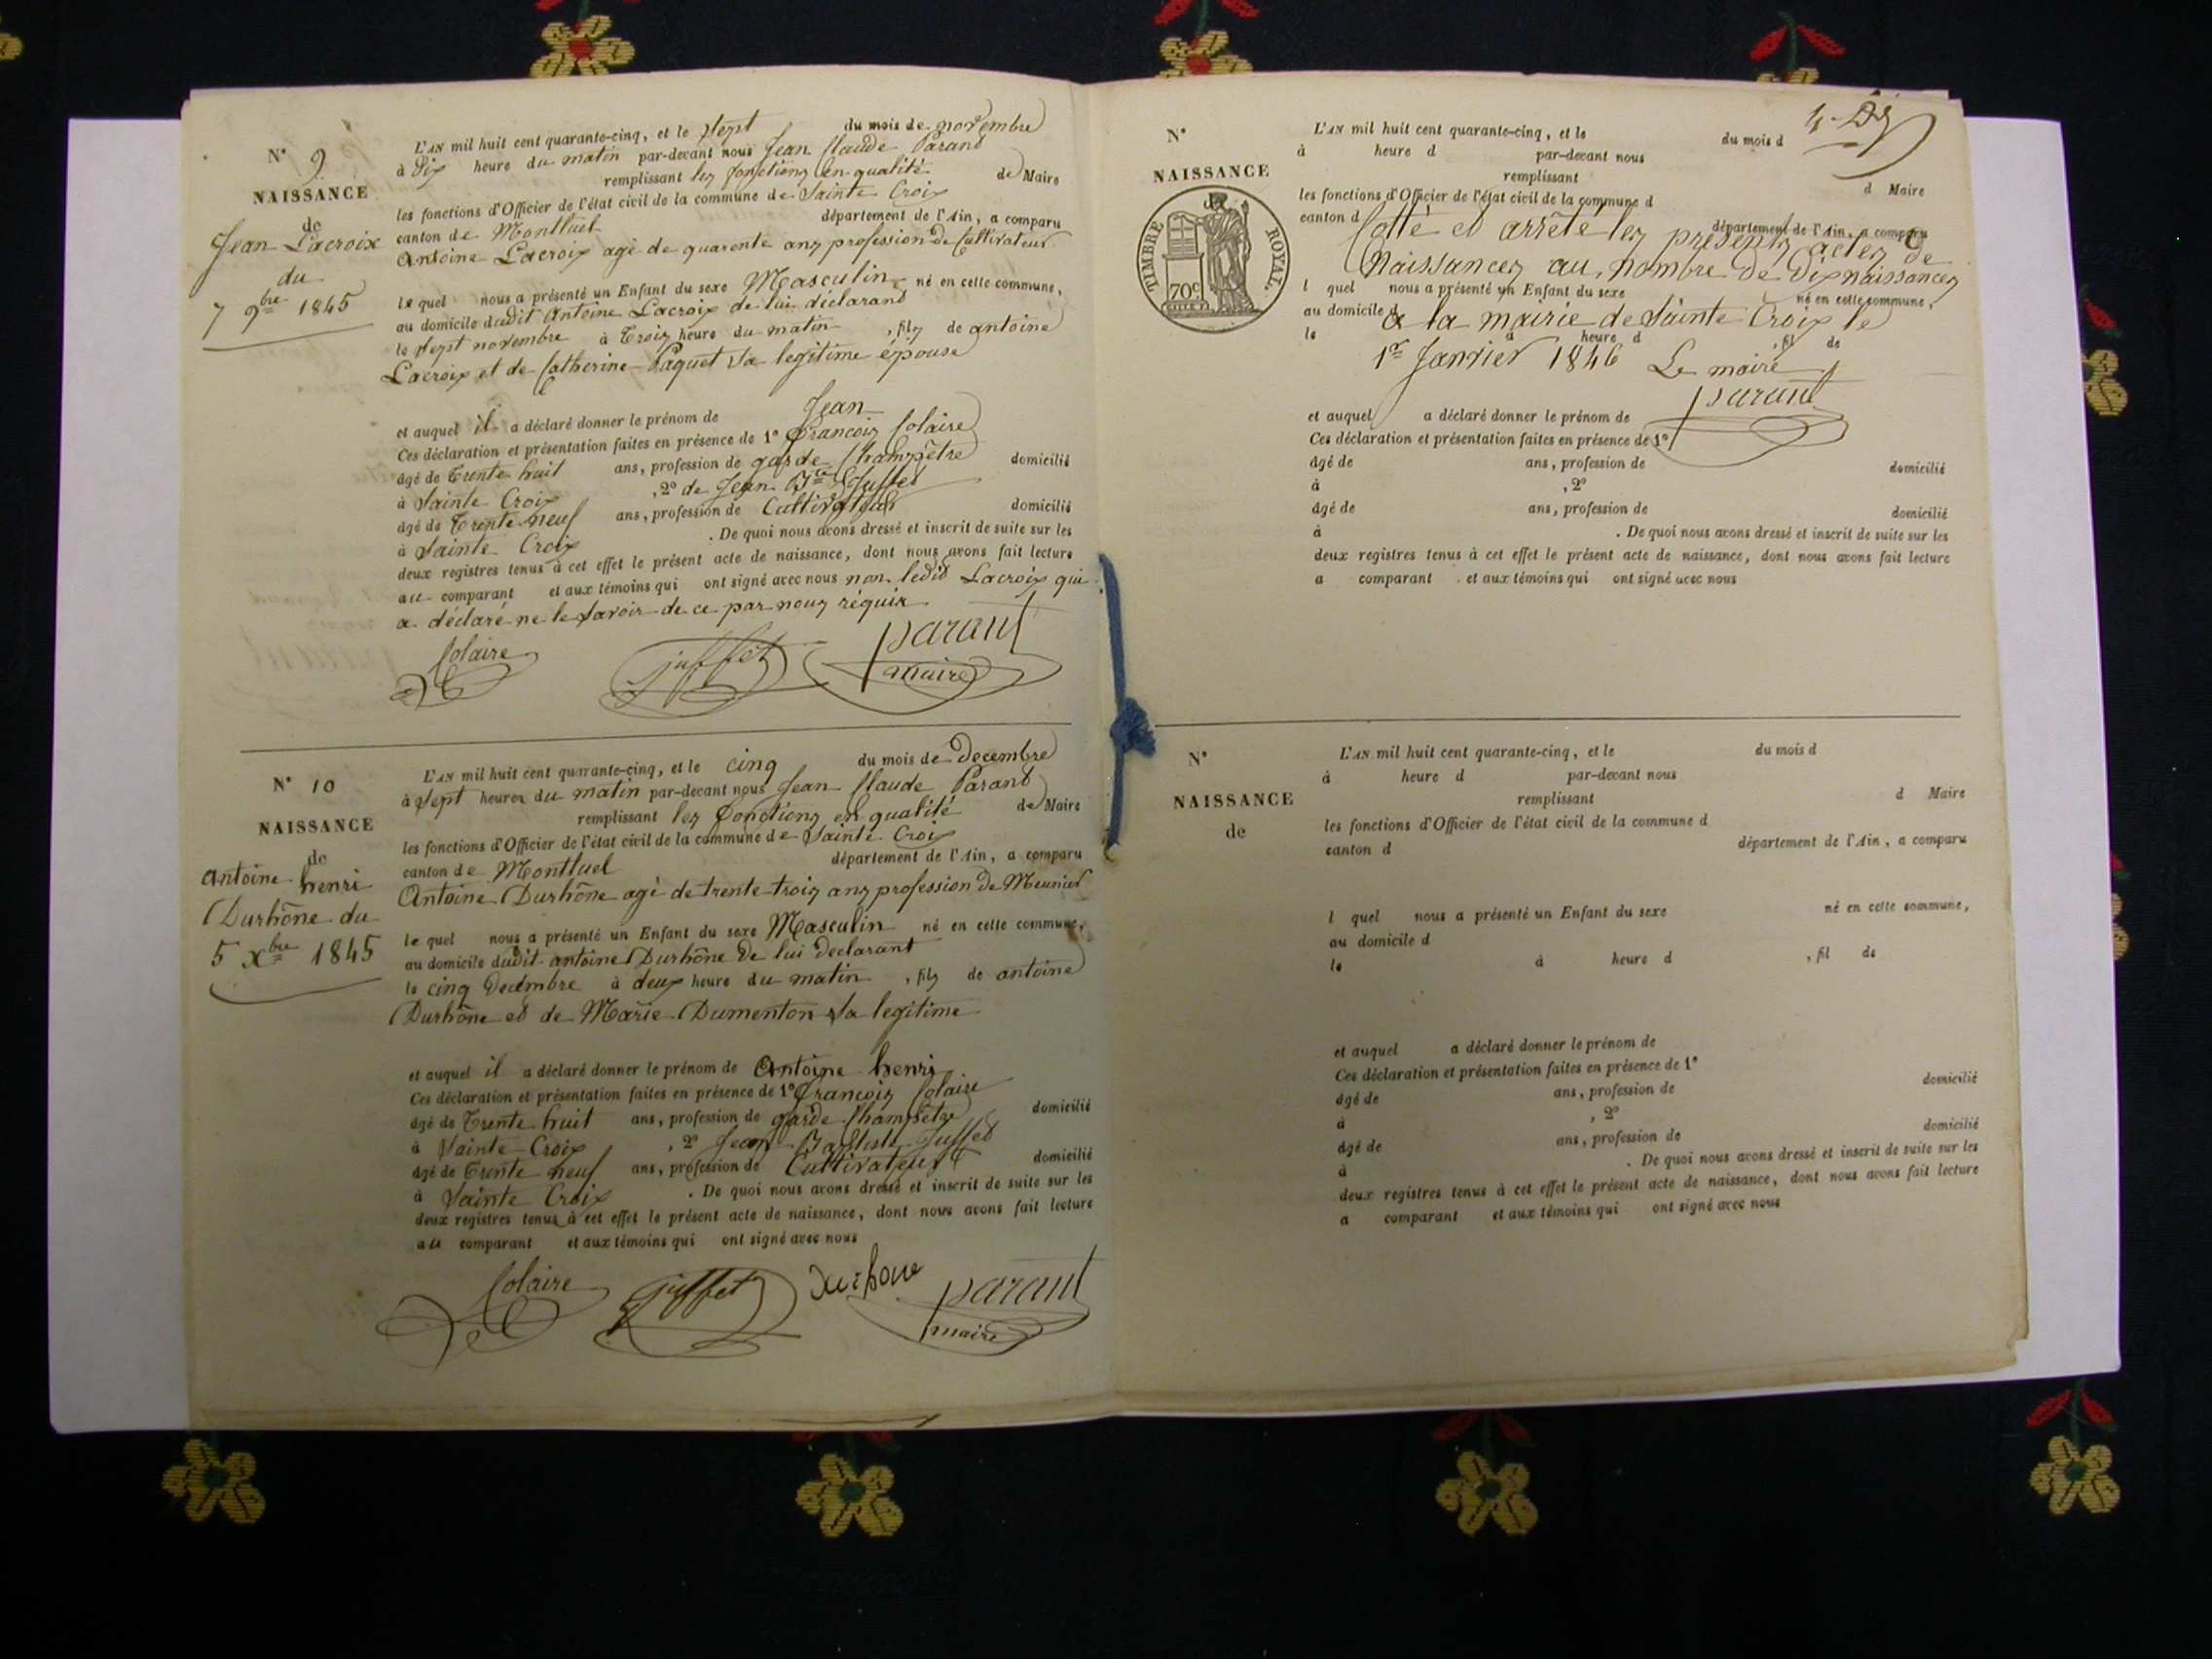 N° 9
NAISSANCE
de
Jean Lacroix
du
7 9bre 1845
L'AN mil huit cent quarante-cinq, et le sept du mois de novembre
à Dix heure du matin par-devant nous Jean Claude Parant
remplissant les fonctions en qualité de Maire
les fonctions d'Officier de l'état civil de la commune de Sainte Croix
canton de Montluel département de l'Ain, a comparu
Antoine Lacroix agé de quarente ans profession de Cultivateur
le quel nous a présenté un Enfant du sexe Masculin né en cette commune,
au domicile dudit Antoine Lacroix de lui déclarant
le sept novembre à Trois heure du matin, fils de antoine
Lacroix et de Catherine Paquet sa legitime épouse
et auquel il a déclaré donner le prénom de Jean
Ces déclaration et présentation faites en présence de 1° Francois Colaire
âgé de Trente huit ans, profession de garde Champêtre domicilié
à Sainte Croix , 2° de Jean Bte Juffet
âgé de Trente neuf ans, profession de Cultivateur domicilié
à Sainte Croix . De quoi nous avons dressé et inscrit de suite sur les
deux registres tenus à cet effet le présent acte de naissance, dont nous avons fait lecture
au comparant et aux témoins qui ont signé avec nous non ledit Lacroix qui
a déclaré ne le savoir de ce par nous réquix
Colaire juffet parant
maire
N° 10
NAISSANCE
de
antoine henri
Durhône du
5 Xbre 1845
L'AN mil huit cent quarante-cinq, et le cinq du mois de Decembre
à sept heures du matin par-devant nous Jean Claude Parant
remplissant les fonctions en qualité de Maire
les fonctions d'Officier de l'état civil de la commune de Sainte Croix
canton de Montluel département de l'Ain, a comparu
Antoine Durhône agé de trente trois ans profession de Meunier
le quel nous a présenté un Enfant du sexe Masculin né en cette commune,
au domicile dudit antoine Durhône de lui declarant
le cinq Decembre à deux heure du matin , fils de antoine
Durhône et de Marie Dumenton sa legitime
et auquel il a déclaré donner le prénom de Antoine henri
Ces déclaration et présentation faites en présence de 1° Francois Colaire
âgé de Trente huit ans, profession de garde Champêtre domicilié
à Sainte Croix , 2° Jean Baptiste Juffet
âgé de Trente neuf ans, profession de Cultivateur domicilié
à Sainte Croix . De quoi nous avons dressé et inscrit de suite sur les
deux registres tenus à cet effet le présent acte de naissance, dont nous avons fait lecture
au comparant et aux témoins qui ont signé avec nous
Colaire juffet Durhone parant
maire
N°
NAISSANCE
TIMBRE ROYAL.
70c
L'AN mil huit cent quarante-cinq, et le du mois d
à heure d par-devant nous
remplissant d Maire
les fonctions d'Officier de l'état civil de la commune d
canton d département de l'Ain, a comparu
Cotté et arrêté les présents actes de
Naissances au nombre de dix naissances
l quel nous a présenté un Enfant du sexe né en cette commune,
au domicile d
à la mairie de Sainte Croix le
le à heure d , fil de
1er Janvier 1846 Le maire
parant
et auquel a déclaré donner le prénom de
Ces déclaration et présentation faites en présence de 1°
âgé de ans, profession de domicilié
à , 2°
âgé de ans, profession de domicilié
à . De quoi nous avons dressé et inscrit de suite sur les
deux registres tenus à cet effet le présent acte de naissance, dont nous avons fait lecture
a comparant et aux témoins qui ont signé avec nous
N°
NAISSANCE
de
L'AN mil huit cent quarante-cinq, et le du mois d
à heure d par-devant nous
remplissant d Maire
les fonctions d'Officier de l'état civil de la commune d
canton d département de l'Ain, a comparu
l quel nous a présenté un Enfant du sexe né en cette commune,
au domicile d
le à heure d , fil de
et auquel a déclaré donner le prénom de
Ces déclaration et présentation faites en présence de 1°
âgé de ans, profession de domicilié
à , 2°
âgé de ans, profession de domicilié
à . De quoi nous avons dressé et inscrit de suite sur les
deux registres tenus à cet effet le présent acte de naissance, dont nous avons fait lecture
a comparant et aux témoins qui ont signé avec nous